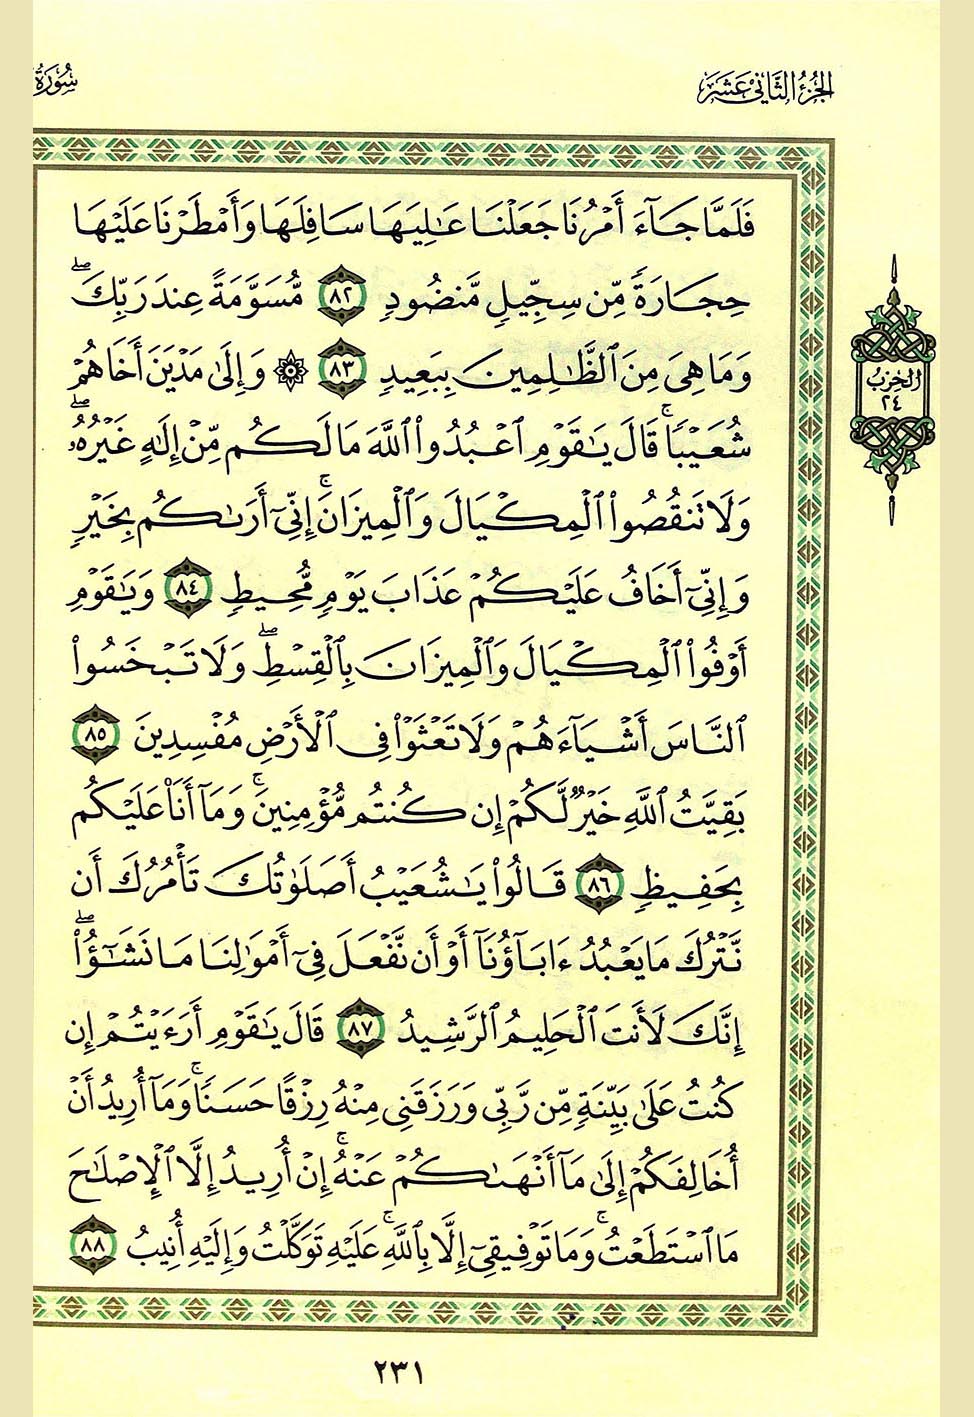 الجزء الثاني عشر
سورة
فَلَمَّا جَآءَ أَمْرُنَا جَعَلْنَا عَٰلِيَهَا سَافِلَهَا وَأَمْطَرْنَا عَلَيْهَا
حِجَارَةً مِّن سِجِّيلٍ مَّنضُودٍ ٨٢ مُّسَوَّمَةً عِندَ رَبِّكَۖ
وَمَا هِيَ مِنَ ٱلظَّٰلِمِينَ بِبَعِيدٍ ٨٣ ۞ وَإِلَىٰ مَدْيَنَ أَخَاهُمْ
شُعَيْبًاۚ قَالَ يَٰقَوْمِ ٱعْبُدُوا۟ ٱللَّهَ مَا لَكُم مِّنْ إِلَٰهٍ غَيْرُهُۥۖ
وَلَا تَنقُصُوا۟ ٱلْمِكْيَالَ وَٱلْمِيزَانَۚ إِنِّىٓ أَرَىٰكُم بِخَيْرٍ
وَإِنِّىٓ أَخَافُ عَلَيْكُمْ عَذَابَ يَوْمٍ مُّحِيطٍ ٨٤ وَيَٰقَوْمِ
أَوْفُوا۟ ٱلْمِكْيَالَ وَٱلْمِيزَانَ بِٱلْقِسْطِۖ وَلَا تَبْخَسُوا۟
ٱلنَّاسَ أَشْيَآءَهُمْ وَلَا تَعْثَوْا۟ فِى ٱلْأَرْضِ مُفْسِدِينَ ٨٥
بَقِيَّتُ ٱللَّهِ خَيْرٌ لَّكُمْ إِن كُنتُم مُّؤْمِنِينَۚ وَمَآ أَنَا۠ عَلَيْكُم
بِحَفِيظٍ ٨٦ قَالُوا۟ يَٰشُعَيْبُ أَصَلَوٰتُكَ تَأْمُرُكَ أَن
نَّتْرُكَ مَا يَعْبُدُ ءَابَآؤُنَآ أَوْ أَن نَّفْعَلَ فِىٓ أَمْوَٰلِنَا مَا نَشَٰٓؤُا۟ۖ
إِنَّكَ لَأَنتَ ٱلْحَلِيمُ ٱلرَّشِيدُ ٨٧ قَالَ يَٰقَوْمِ أَرَءَيْتُمْ إِن
كُنتُ عَلَىٰ بَيِّنَةٍ مِّن رَّبِّى وَرَزَقَنِى مِنْهُ رِزْقًا حَسَنًاۚ وَمَآ أُرِيدُ أَنْ
أُخَالِفَكُمْ إِلَىٰ مَآ أَنْهَىٰكُمْ عَنْهُۚ إِنْ أُرِيدُ إِلَّا ٱلْإِصْلَٰحَ
مَا ٱسْتَطَعْتُۚ وَمَا تَوْفِيقِىٓ إِلَّا بِٱللَّهِۚ عَلَيْهِ تَوَكَّلْتُ وَإِلَيْهِ أُنِيبُ ٨٨
الحزب
٢٤
٢٣١